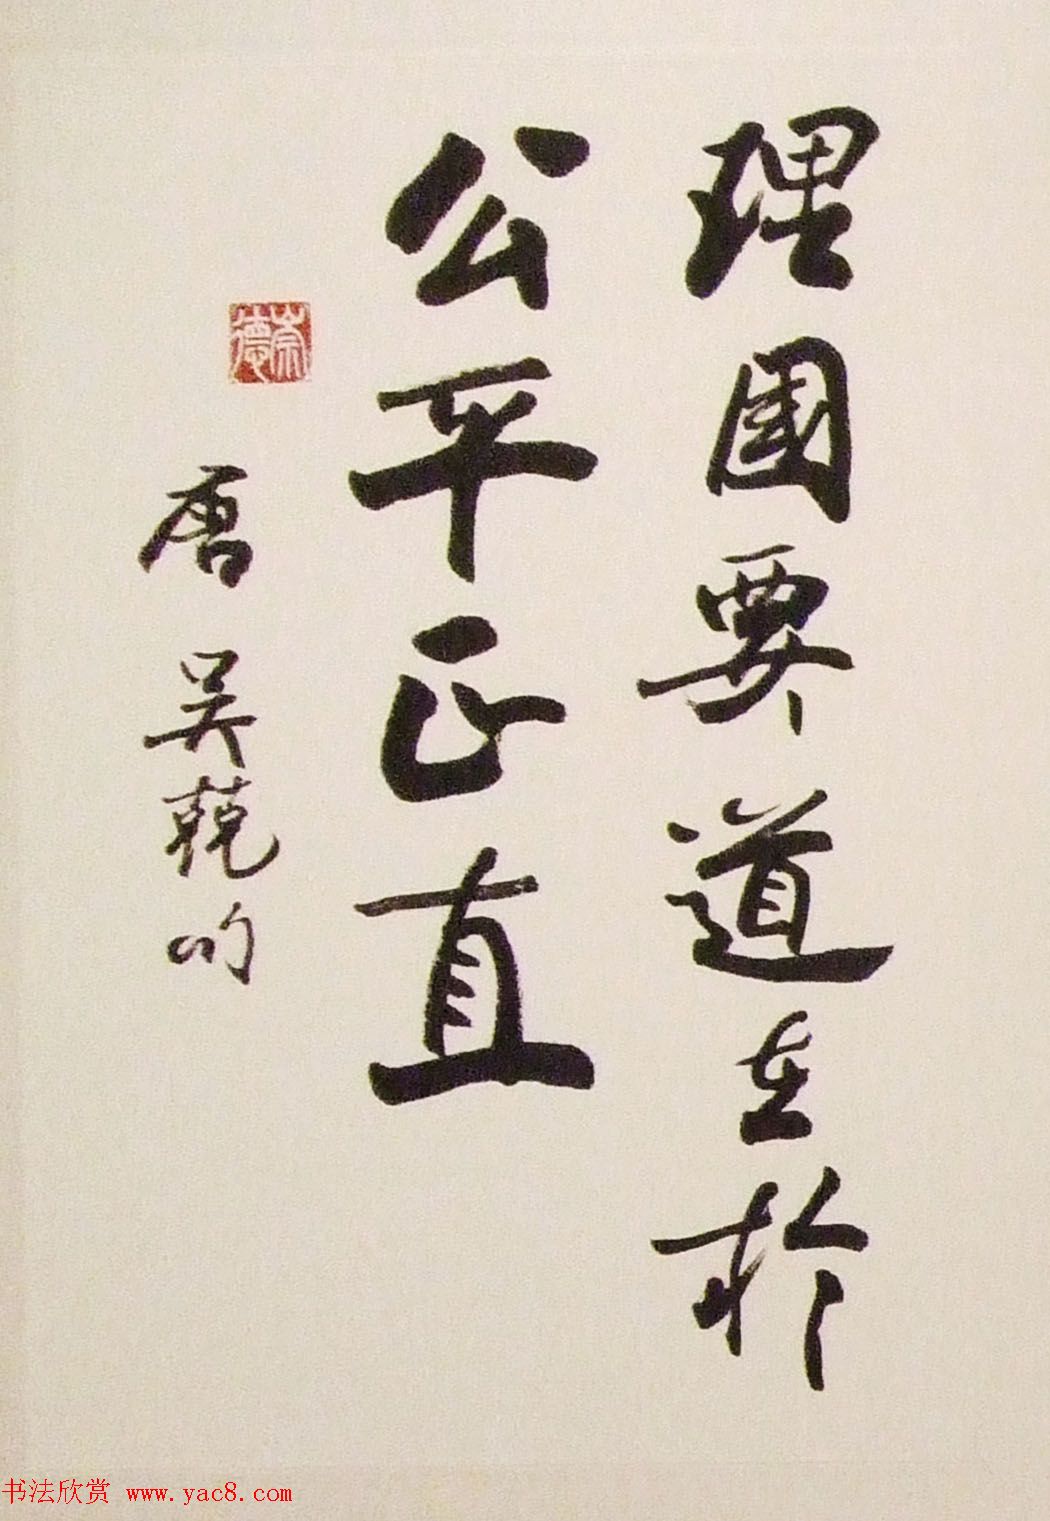 理國要道在於
公平正直
唐 吴兢句
崇德
书法欣赏 www.yac8.com